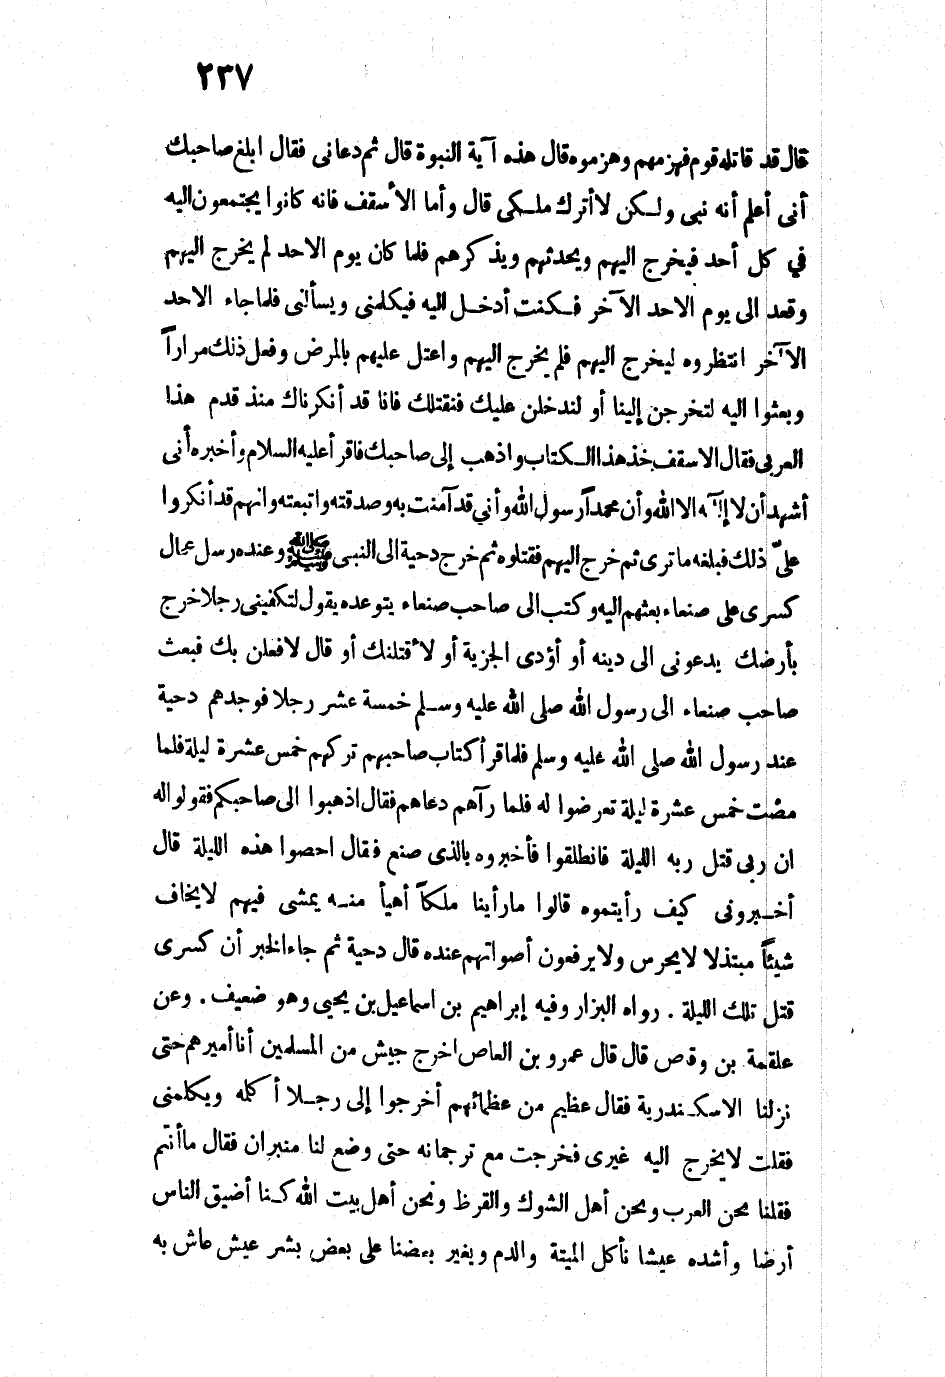 ٢٣٧
قال قد قاتله قوم فهزمهم وهزموه قال هذه آية النبوة قال ثم دعانى فقال ابلغ صاحبك
أنى أعلم أنه نبى ولكن لا أترك ملكى قال وأما الأسقف فانه كانوا يجتمعون اليه
في كل أحد فيخرج اليهم ويحدثهم ويذكرهم فلما كان يوم الاحد لم يخرج اليهم
وقعد الى يوم الاحد الآخر فكنت أدخل اليه فيكلمنى ويسألنى فلما جاء الاحد
الآخر انتظروه ليخرج اليهم فلم يخرج اليهم واعتل عليهم بالمرض وفعل ذلك مراراً
وبعثوا اليه لتخرجن إلينا أو لندخلن عليك فنقتلك فانا قد أنكرناك منذ قدم هذا
العربى فقال الاسقف خذ هذا الكتاب واذهب إلى صاحبك فاقرأ عليه السلام وأخبره أنى
أشهد أن لا إله الا الله وأن محمداً رسول الله وأني قد آمنت به وصدقته واتبعته وانهم قد أنكروا
علىّ ذلك فبلغه ما ترى ثم خرج اليهم فقتلوه ثم خرج دحية الى النبى ﷺ وعنده رسل عمال
كسرى على صنعاء بعثهم اليه وكتب الى صاحب صنعاء يتوعده يقول لتكفينى رجلا خرج
بأرضك يدعونى الى دينه أو أؤدى الجزية أو لأقتلنك أو قال لافعلن بك فبعث
صاحب صنعاء الى رسول الله صلى الله عليه وسلم خمسة عشر رجلا فوجدهم دحية
عند رسول الله صلى الله عليه وسلم فلما قرأ كتاب صاحبهم تركهم خمس عشرة ليلة فلما
مضت خمس عشرة ليلة تعرضوا له فلما رآهم دعاهم فقال اذهبوا الى صاحبكم فقولوا له
ان ربى قتل ربه الليلة فانطلقوا فأخبروه بالذى صنع فقال احصوا هذه الليلة قال
أخبرونى كيف رأيتموه قالوا ما رأينا ملكاً أهيأ منه يمشى فيهم لا يخاف
شيئاً مبتذلا لا يحرس ولا يرفعون أصواتهم عنده قال دحية ثم جاء الخبر أن كسرى
قتل تلك الليلة . رواه البزار وفيه إبراهيم بن اسماعيل بن يحيى وهو ضعيف . وعن
علقمة بن وقاص قال قال عمرو بن العاص اخرج جيش من المسلمين أنا أميرهم حتى
نزلنا الاسكندرية فقال عظيم من عظمائهم أخرجوا إلى رجلا أكلمه ويكلمنى
فقلت لا يخرج اليه غيرى فخرجت مع ترجمانه حتى وضع لنا منبران فقال ما أنتم
فقلنا نحن العرب ونحن أهل الشوك والقرظ ونحن أهل بيت الله كنا أضيق الناس
أرضا وأشده عيشا نأكل الميتة والدم ويغير بعضنا على بعض بشر عيش عاش به